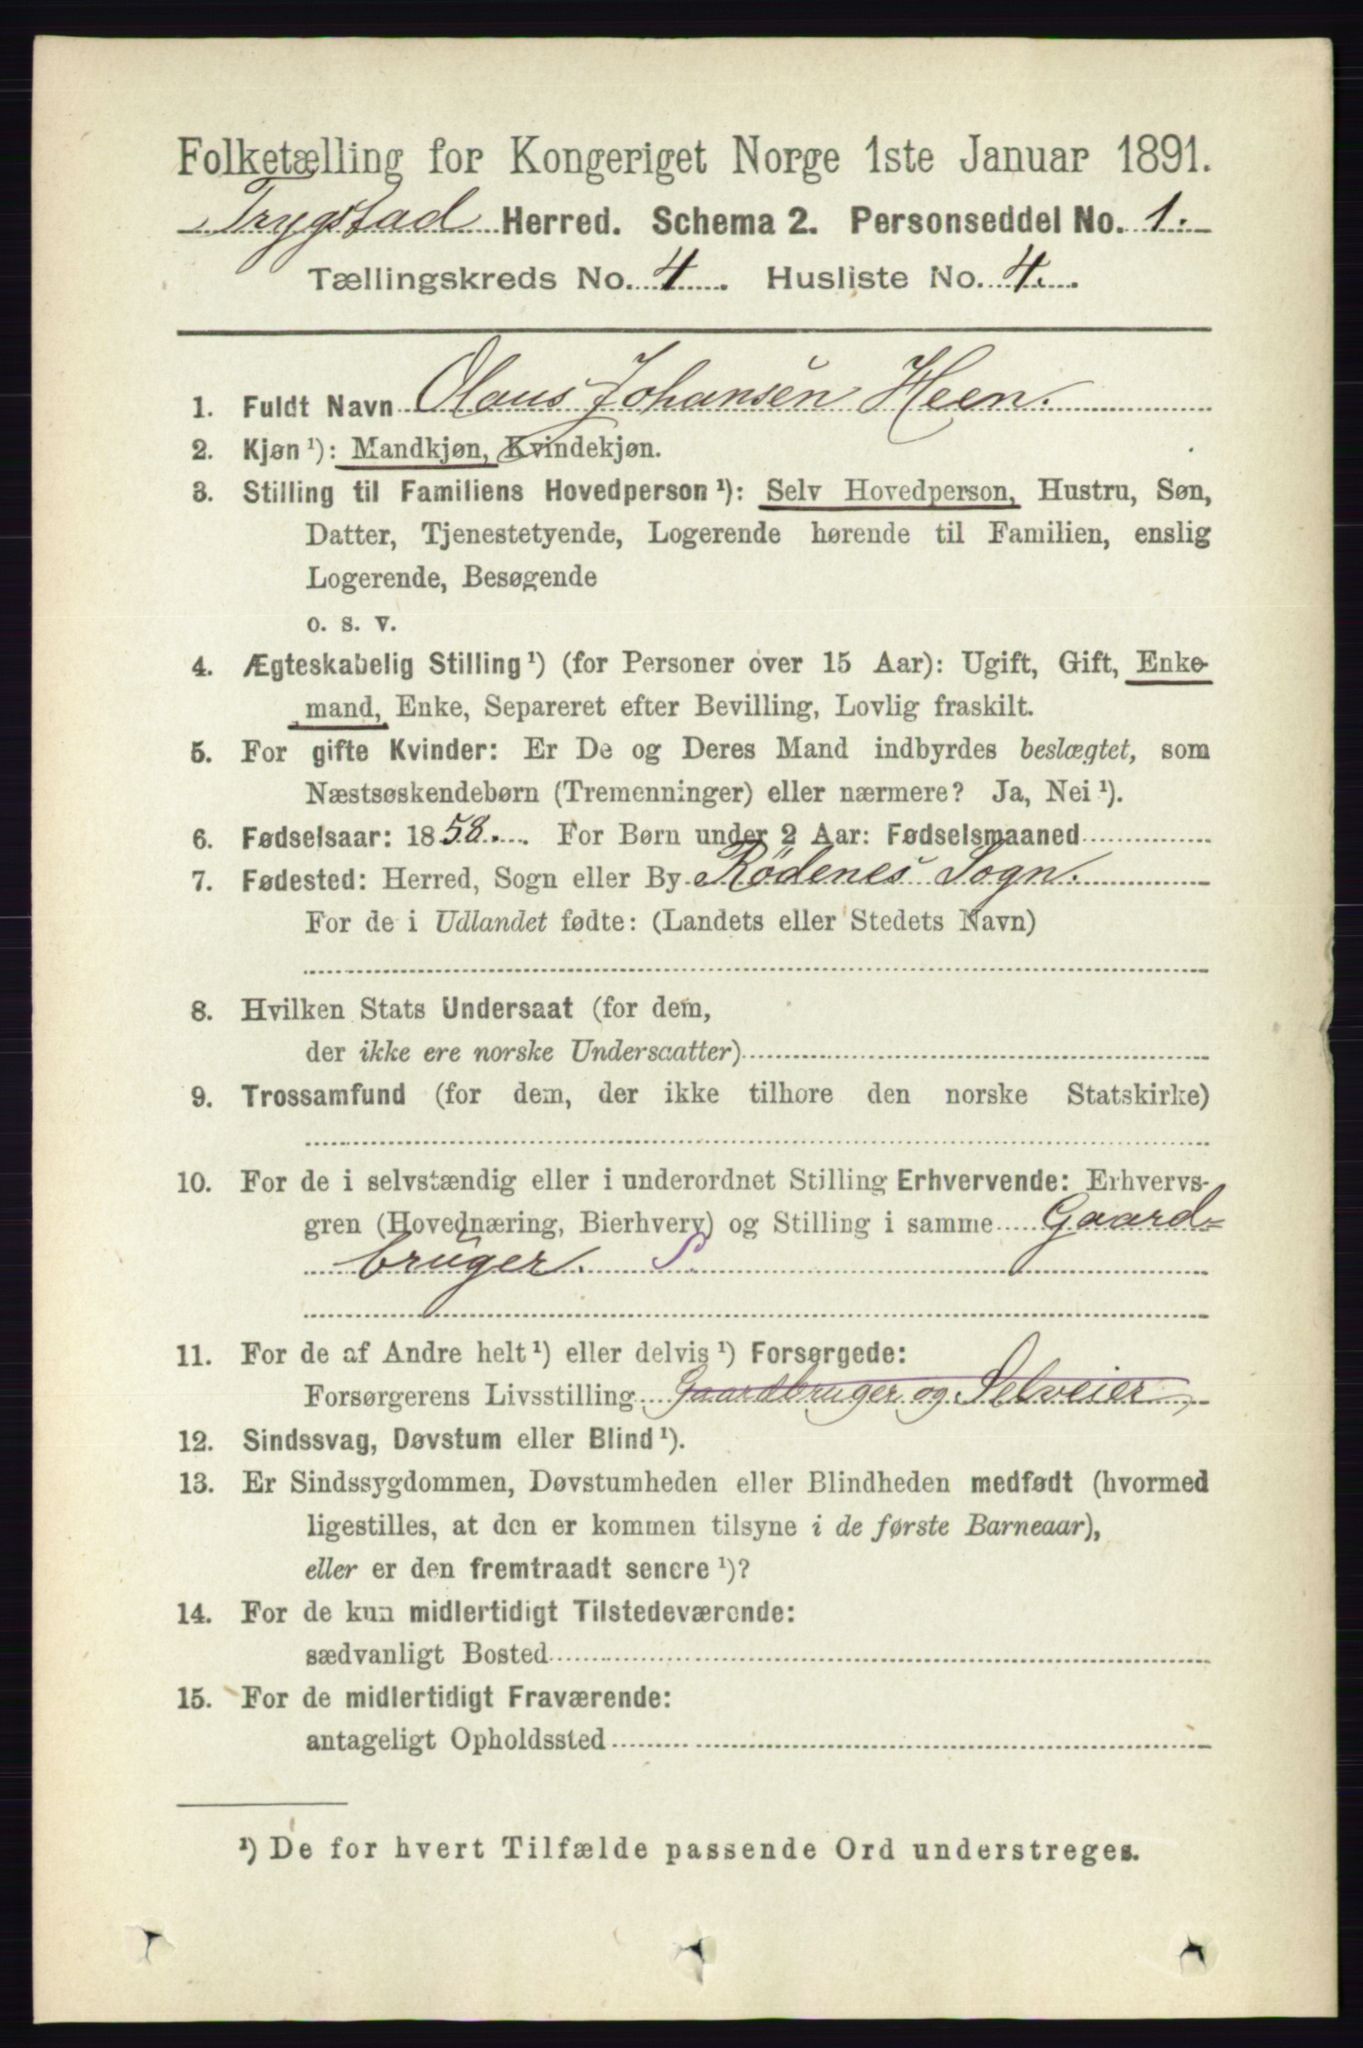 Folketælling for Kongeriget Norge 1ste Januar 1891.
Trygstad Herred. Schema 2. Personseddel No. 1.
Tællingskreds No. 4. Husliste No. 4.
1. Fuldt Navn Olaus Johansen Heen.
2. Kjøn ¹): Mandkjøn, Kvindekjøn.
3. Stilling til Familiens Hovedperson ¹): Selv Hovedperson, Hustru, Søn,
Datter, Tjenestetyende, Logerende hørende til Familien, enslig
Logerende, Besøgende
o. s. v.
4. Ægteskabelig Stilling ¹) (for Personer over 15 Aar): Ugift, Gift, Enke-
mand, Enke, Separeret efter Bevilling, Lovlig fraskilt.
5. For gifte Kvinder: Er De og Deres Mand indbyrdes beslægtet, som
Næstsøskendebørn (Tremenninger) eller nærmere? Ja, Nei ¹).
6. Fødselsaar: 1858. For Børn under 2 Aar: Fødselsmaaned
7. Fødested: Herred, Sogn eller By Rödenes Sogn.
For de i Udlandet fødte: (Landets eller Stedets Navn)
8. Hvilken Stats Undersaat (for dem,
der ikke ere norske Undersaatter)
9. Trossamfund (for dem, der ikke tilhøre den norske Statskirke)
10. For de i selvstændig eller i underordnet Stilling Erhvervende: Erhvervs-
gren (Hovednæring, Bierhverv) og Stilling i samme Gaard-
bruger. S
11. For de af Andre helt ¹) eller delvis ¹) Forsørgede:
Forsørgerens Livsstilling Gaardbruger og Selveier
12. Sindssvag, Døvstum eller Blind ¹).
13. Er Sindssygdommen, Døvstumheden eller Blindheden medfødt (hvormed
ligestilles, at den er kommen tilsyne i de første Barneaar),
eller er den fremtraadt senere ¹)?
14. For de kun midlertidigt Tilstedeværende:
sædvanligt Bosted
15. For de midlertidigt Fraværende:
antageligt Opholdssted
¹) De for hvert Tilfælde passende Ord understreges.